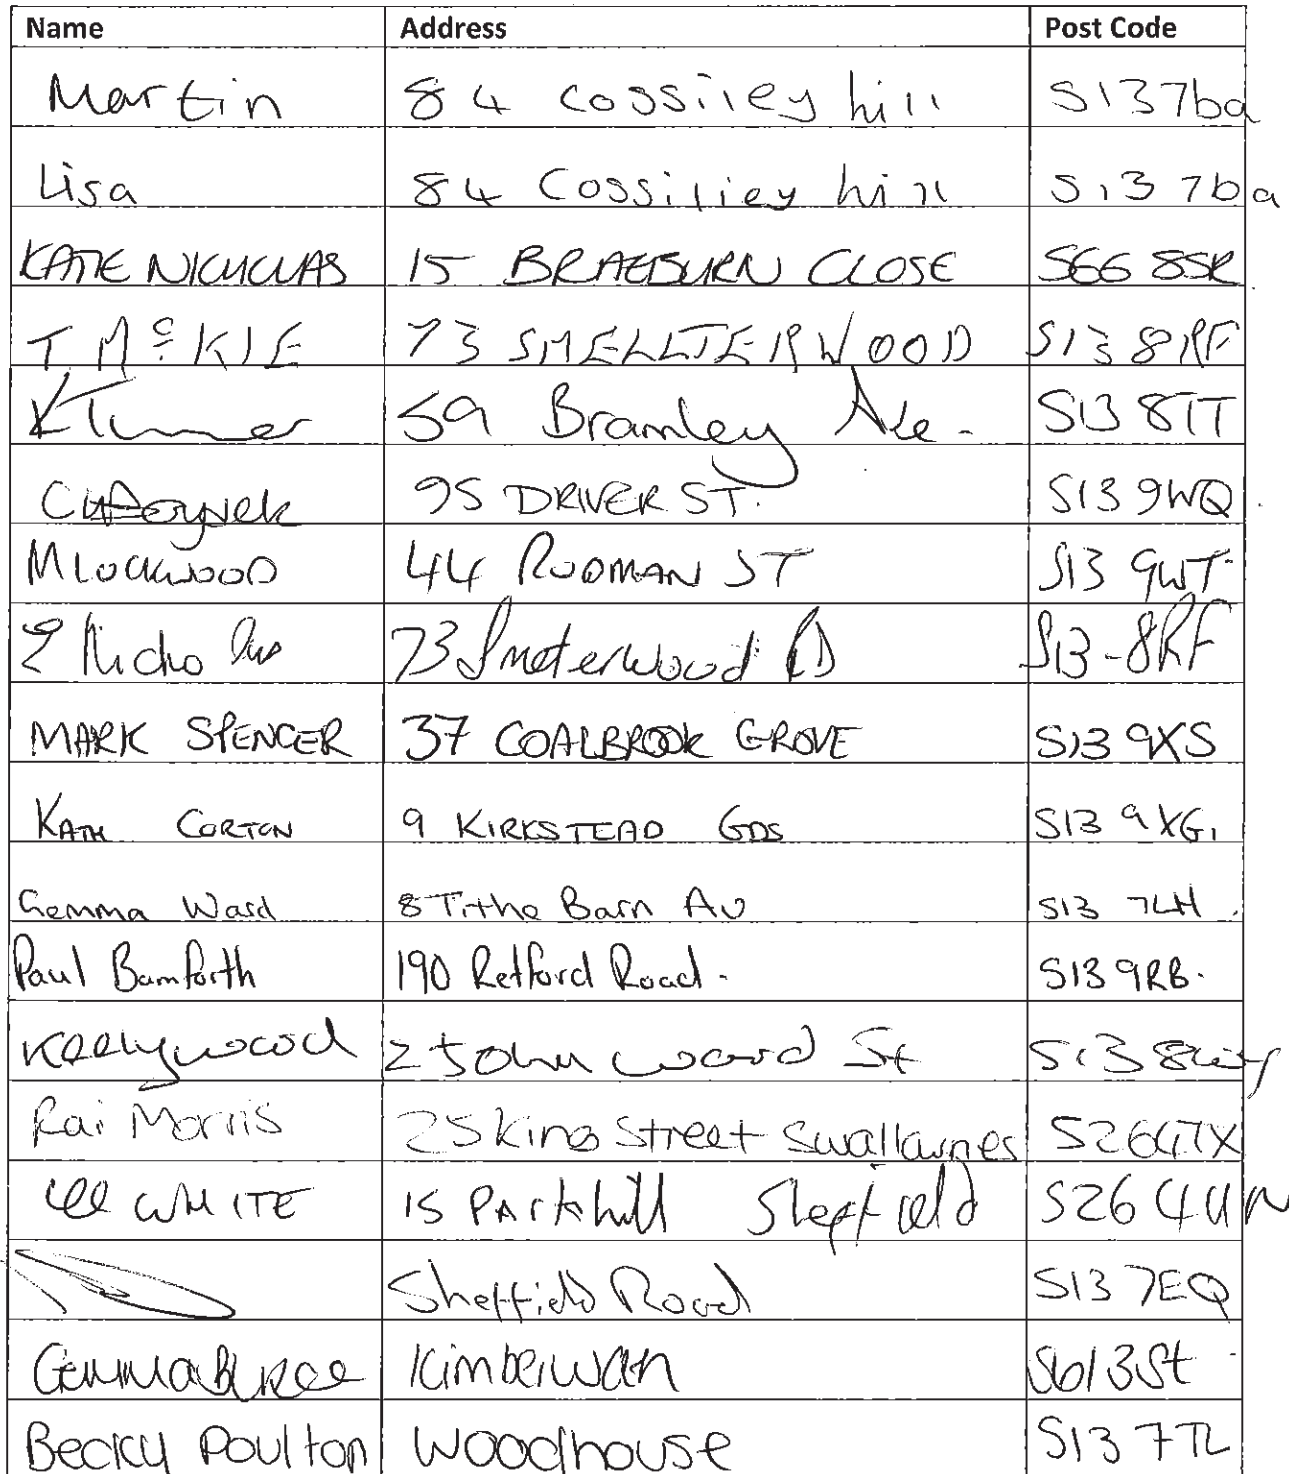 Name Address Post Code
Martin 84 cossiley hill S13 7ba
Lisa 84 Cossiliey hill S13 7ba
KATIE NICHOLAS 15 BRAEBURN CLOSE S66 8SR
T McKIE 73 SMELLTERWOOD S13 8RF
59 Bramley Ave. S13 8TT
95 DRIVER ST. S13 9WQ
M LOCKWOOD 44 RODMAN ST S13 9WT
Nicholas 73 Smelterwood RD S13-8RF
MARK SPENCER 37 COALBROOK GROVE S13 9XS
KATH CORTON 9 KIRKSTEAD GDS S13 9XG
Gemma Ward 8 Tithe Barn Av S13 7LH
Paul Bamforth 190 Retford Road. S13 9RB.
Keelywood 2 John Ward St S13
Rai Morris 25 King Street Swallownes S26 4TX
Lee WHITE 15 Parkhill Sheffield S26 4UN
Sheffield Road S13 7EQ
Gemma Kimberwoth S61 3St
Becky Poulton Woodhouse S13 7TL